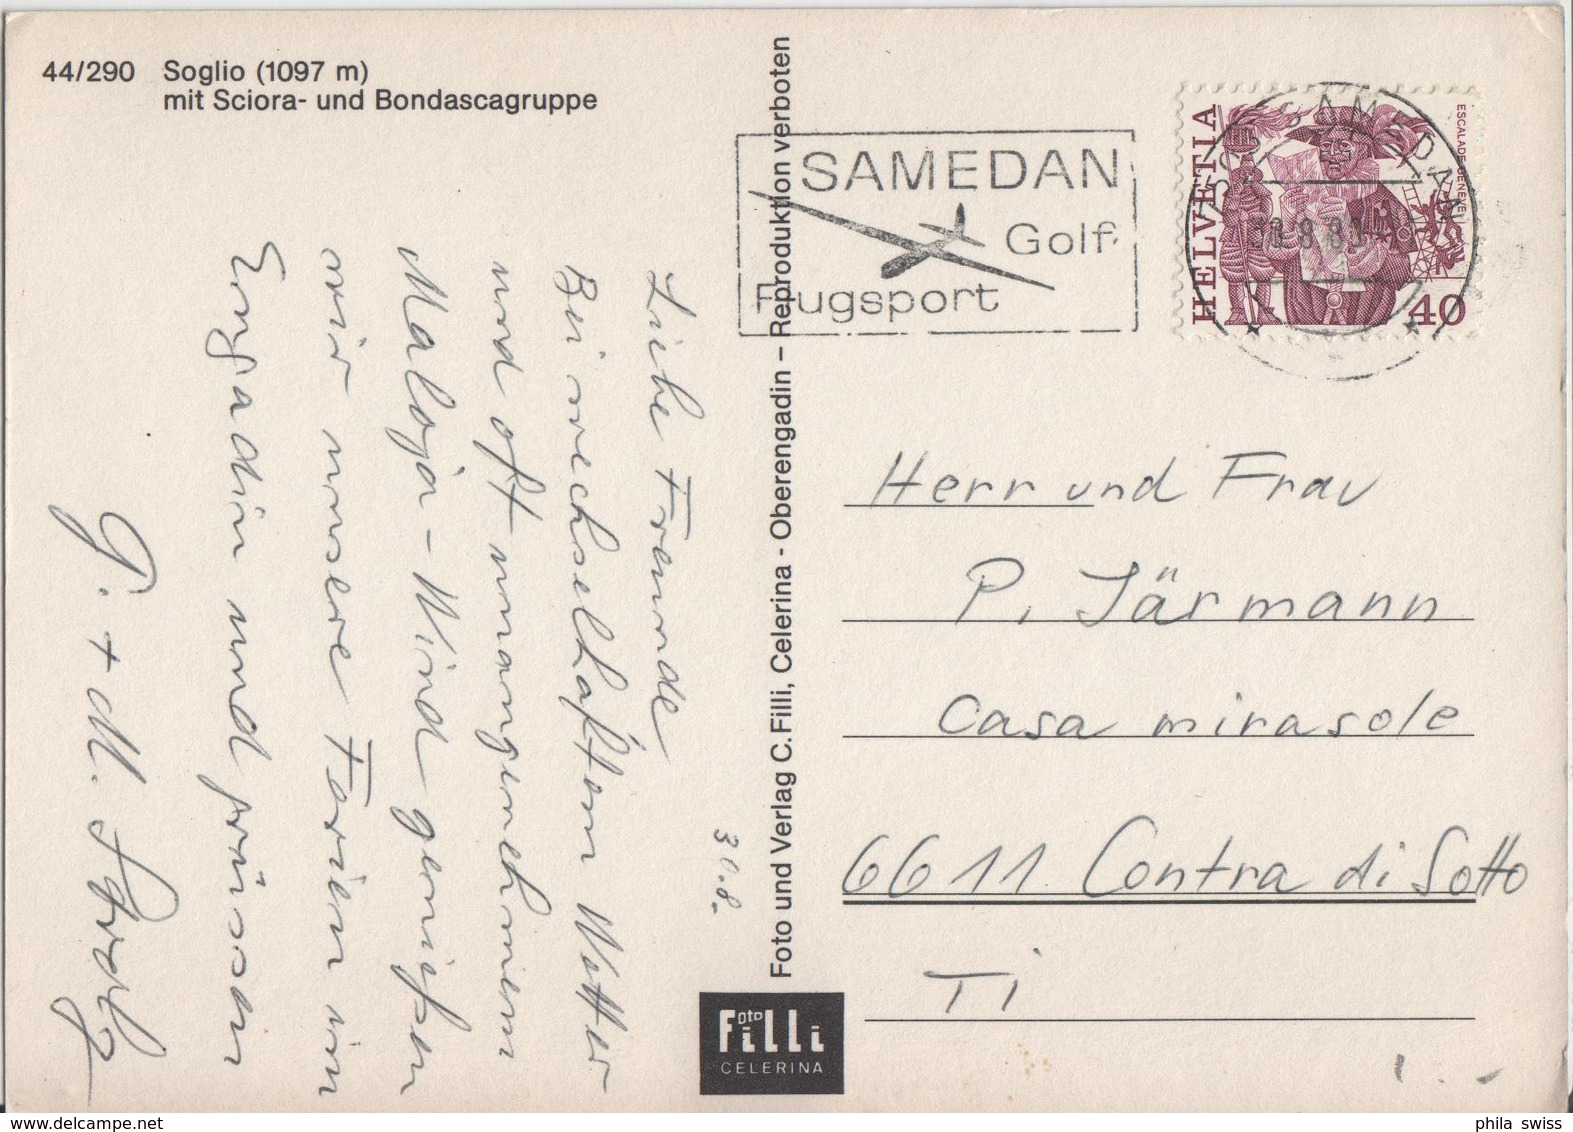 44/290 Soglio (1097 m)
mit Sciora- und Bondascagruppe
SAMEDAN
Golf
Flugsport
HELVETIA
ESCALADE GENEVE
40
SAMEDAN
Liebe Freunde
Bei wechselhaftem Wetter
und oft unangenehmem
Maloja-Wind genießen
wir unsere Ferien im
Engadin und grüssen
G. + M.
30.8.
Foto und Verlag C. Filli, Celerina - Oberengadin – Reproduktion verboten
Herr und Frau
P. Järmann
Casa mirasole
6611 Contra di Sotto
Ti
Foto
Filli
CELERINA
phila swiss